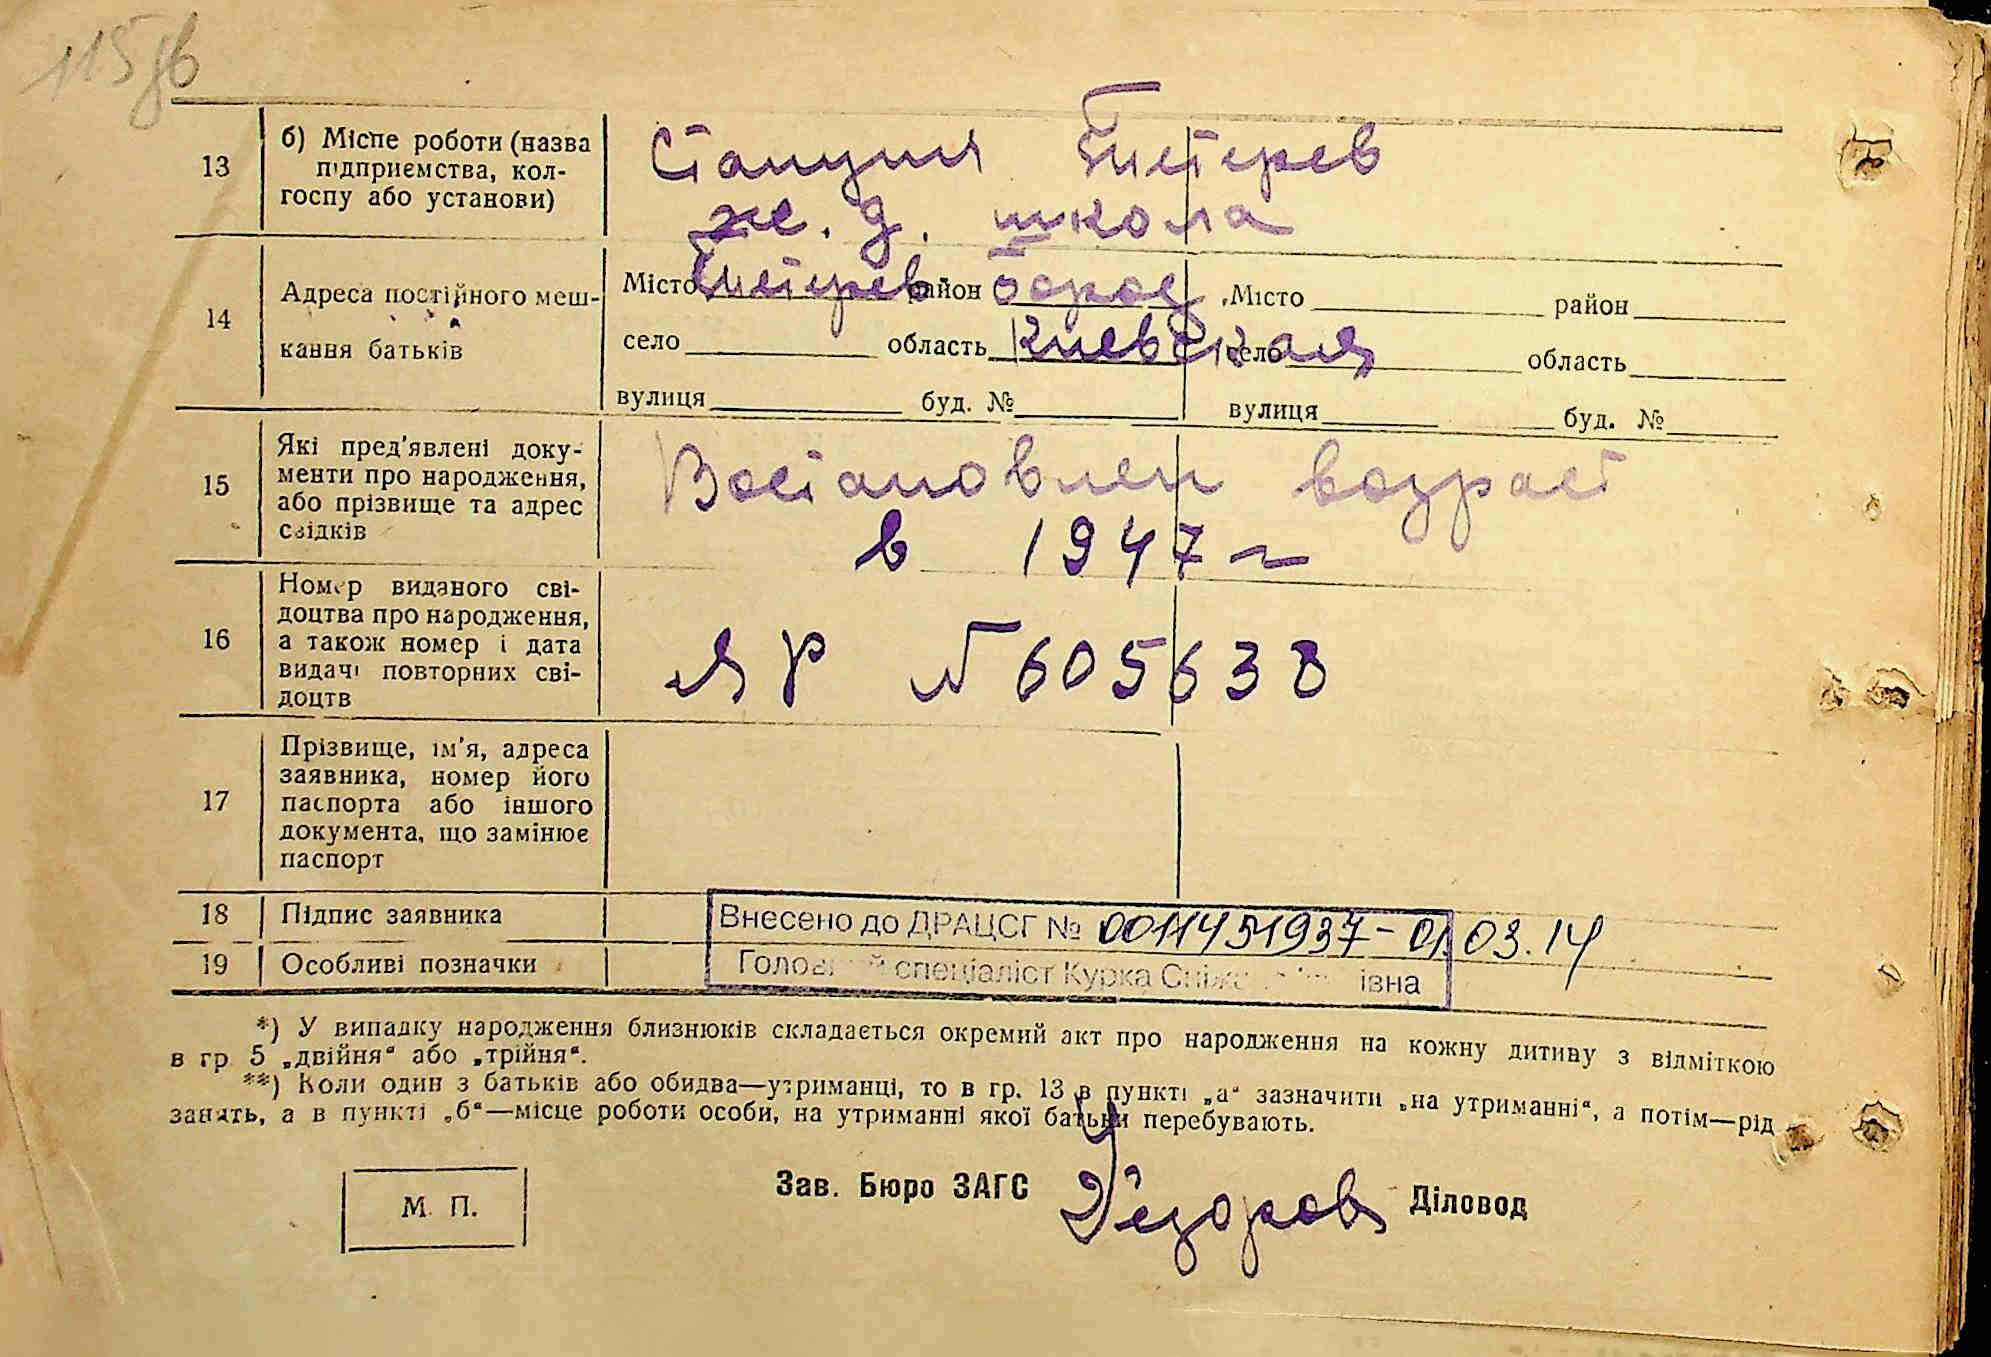 115 зв
13
б) Місце роботи (назва
підприємства, кол-
госпу або установи)
Станция Тетерев
ж. д. школа
14
Адреса постійного меш-
кання батьків
Місто Тетерев район Бороd Місто район
село область Киевская село область
вулиця буд. № вулиця буд. №
15
Які пред'явлені доку-
менти про народження,
або прізвище та адрес
свідків
Востановлен возраст
в 1947 г
16
Номер виданого сві-
доцтва про народження,
а також номер і дата
видачі повторних сві-
доцтв
ЯР № 605638
17
Прізвище, ім'я, адреса
заявника, номер його
паспорта або іншого
документа, що замінює
паспорт
18 Підпис заявника
Внесено до ДРАЦСГ № 0011451937-01.03.14
19 Особливі позначки
Головний спеціаліст Курка
*) У випадку народження близнюків складається окремий акт про народження на кожну дитину з відміткою
в гр 5 „двійня“ або „трійня“.
**) Коли один з батьків або обидва—утриманці, то в гр. 13 в пункті „а“ зазначити „на утриманні“, а потім—рід
занять, а в пункті „б“—місце роботи особи, на утриманні якої батьки перебувають.
М. П.
Зав. Бюро ЗАГС
Діловод